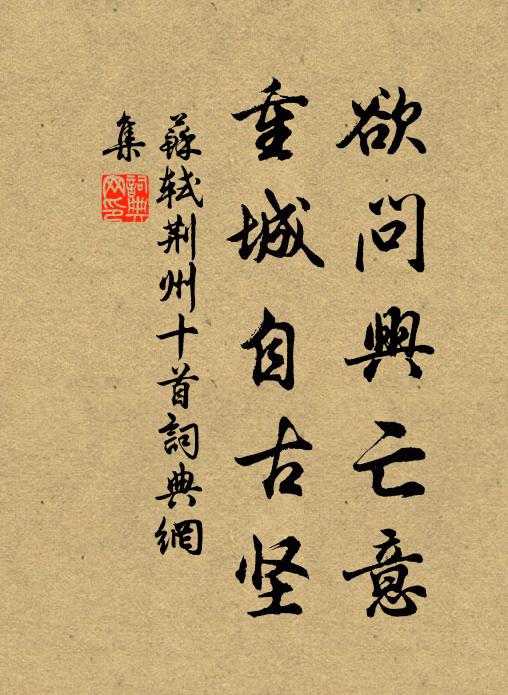 欲問興亡意
重城自古坚
蘇軾荆州十首詞典網
集
詞典
网印